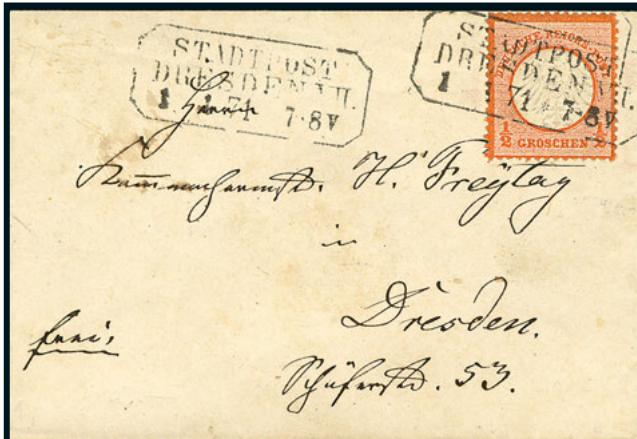 STADTPOST
DRESDEN VII.
1 1 71 7-8V
STADTPOST
DRESDEN VII.
1 71 7-8V
DEUTSCHE REICHS-POST
1/2 GROSCHEN 1/2
Herrn
Kammachermstr. H. Freytag
in
Dresden.
Schäferstr. 53.
frei.